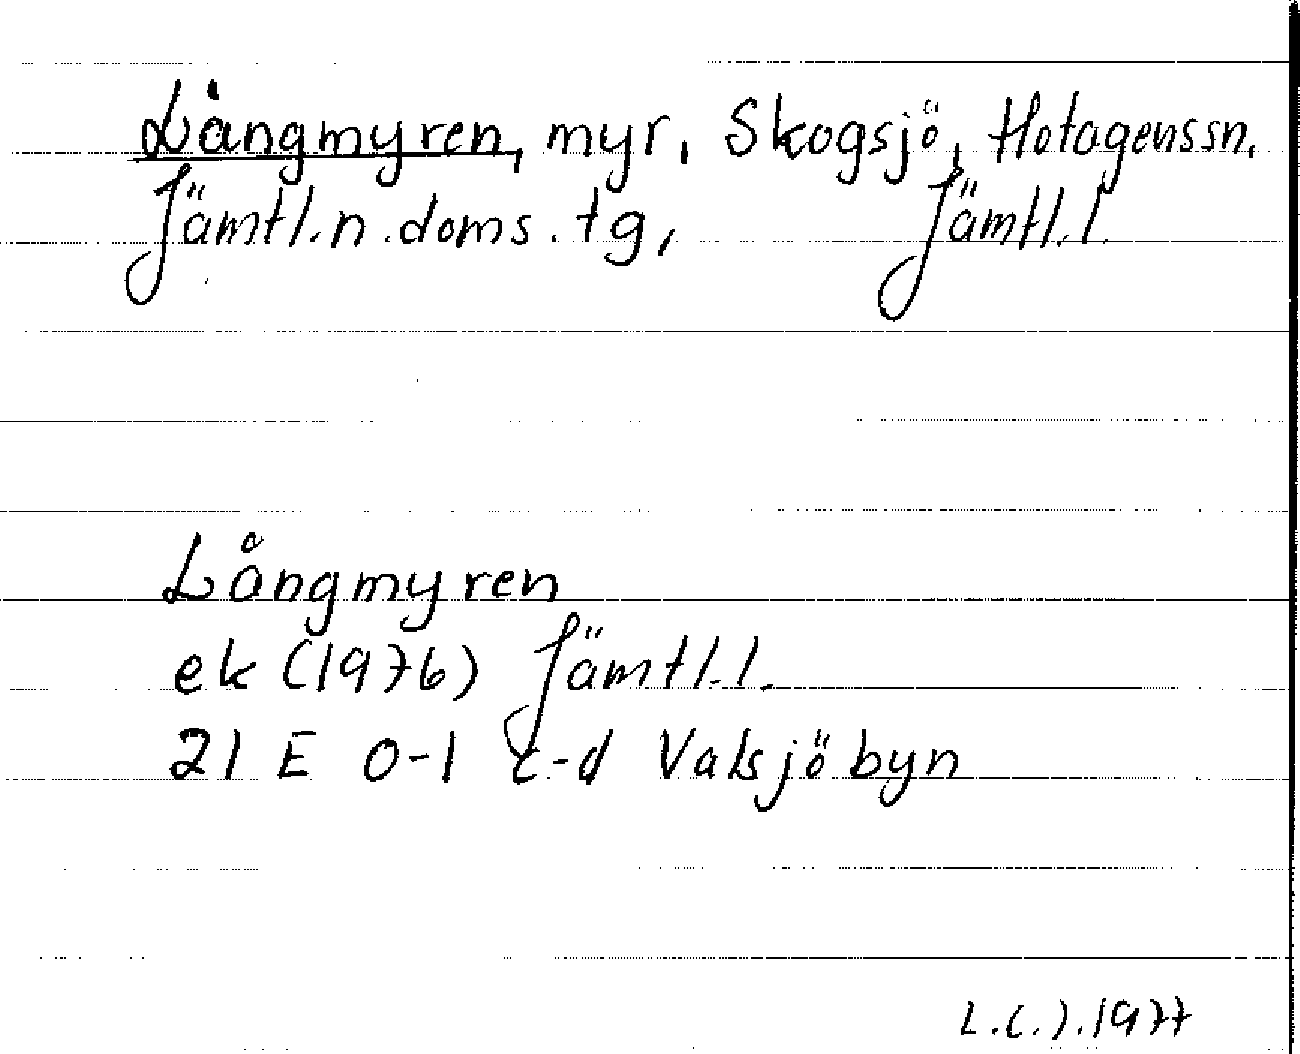 Långmyren, myr, Skogsjö, Hotagens sn.
Jämtl. n. doms. tg, Jämtl. l.
Långmyren
ek (1976) Jämtl. l.
21 E 0-1 c-d Valsjöbyn
L.C.J. 1977